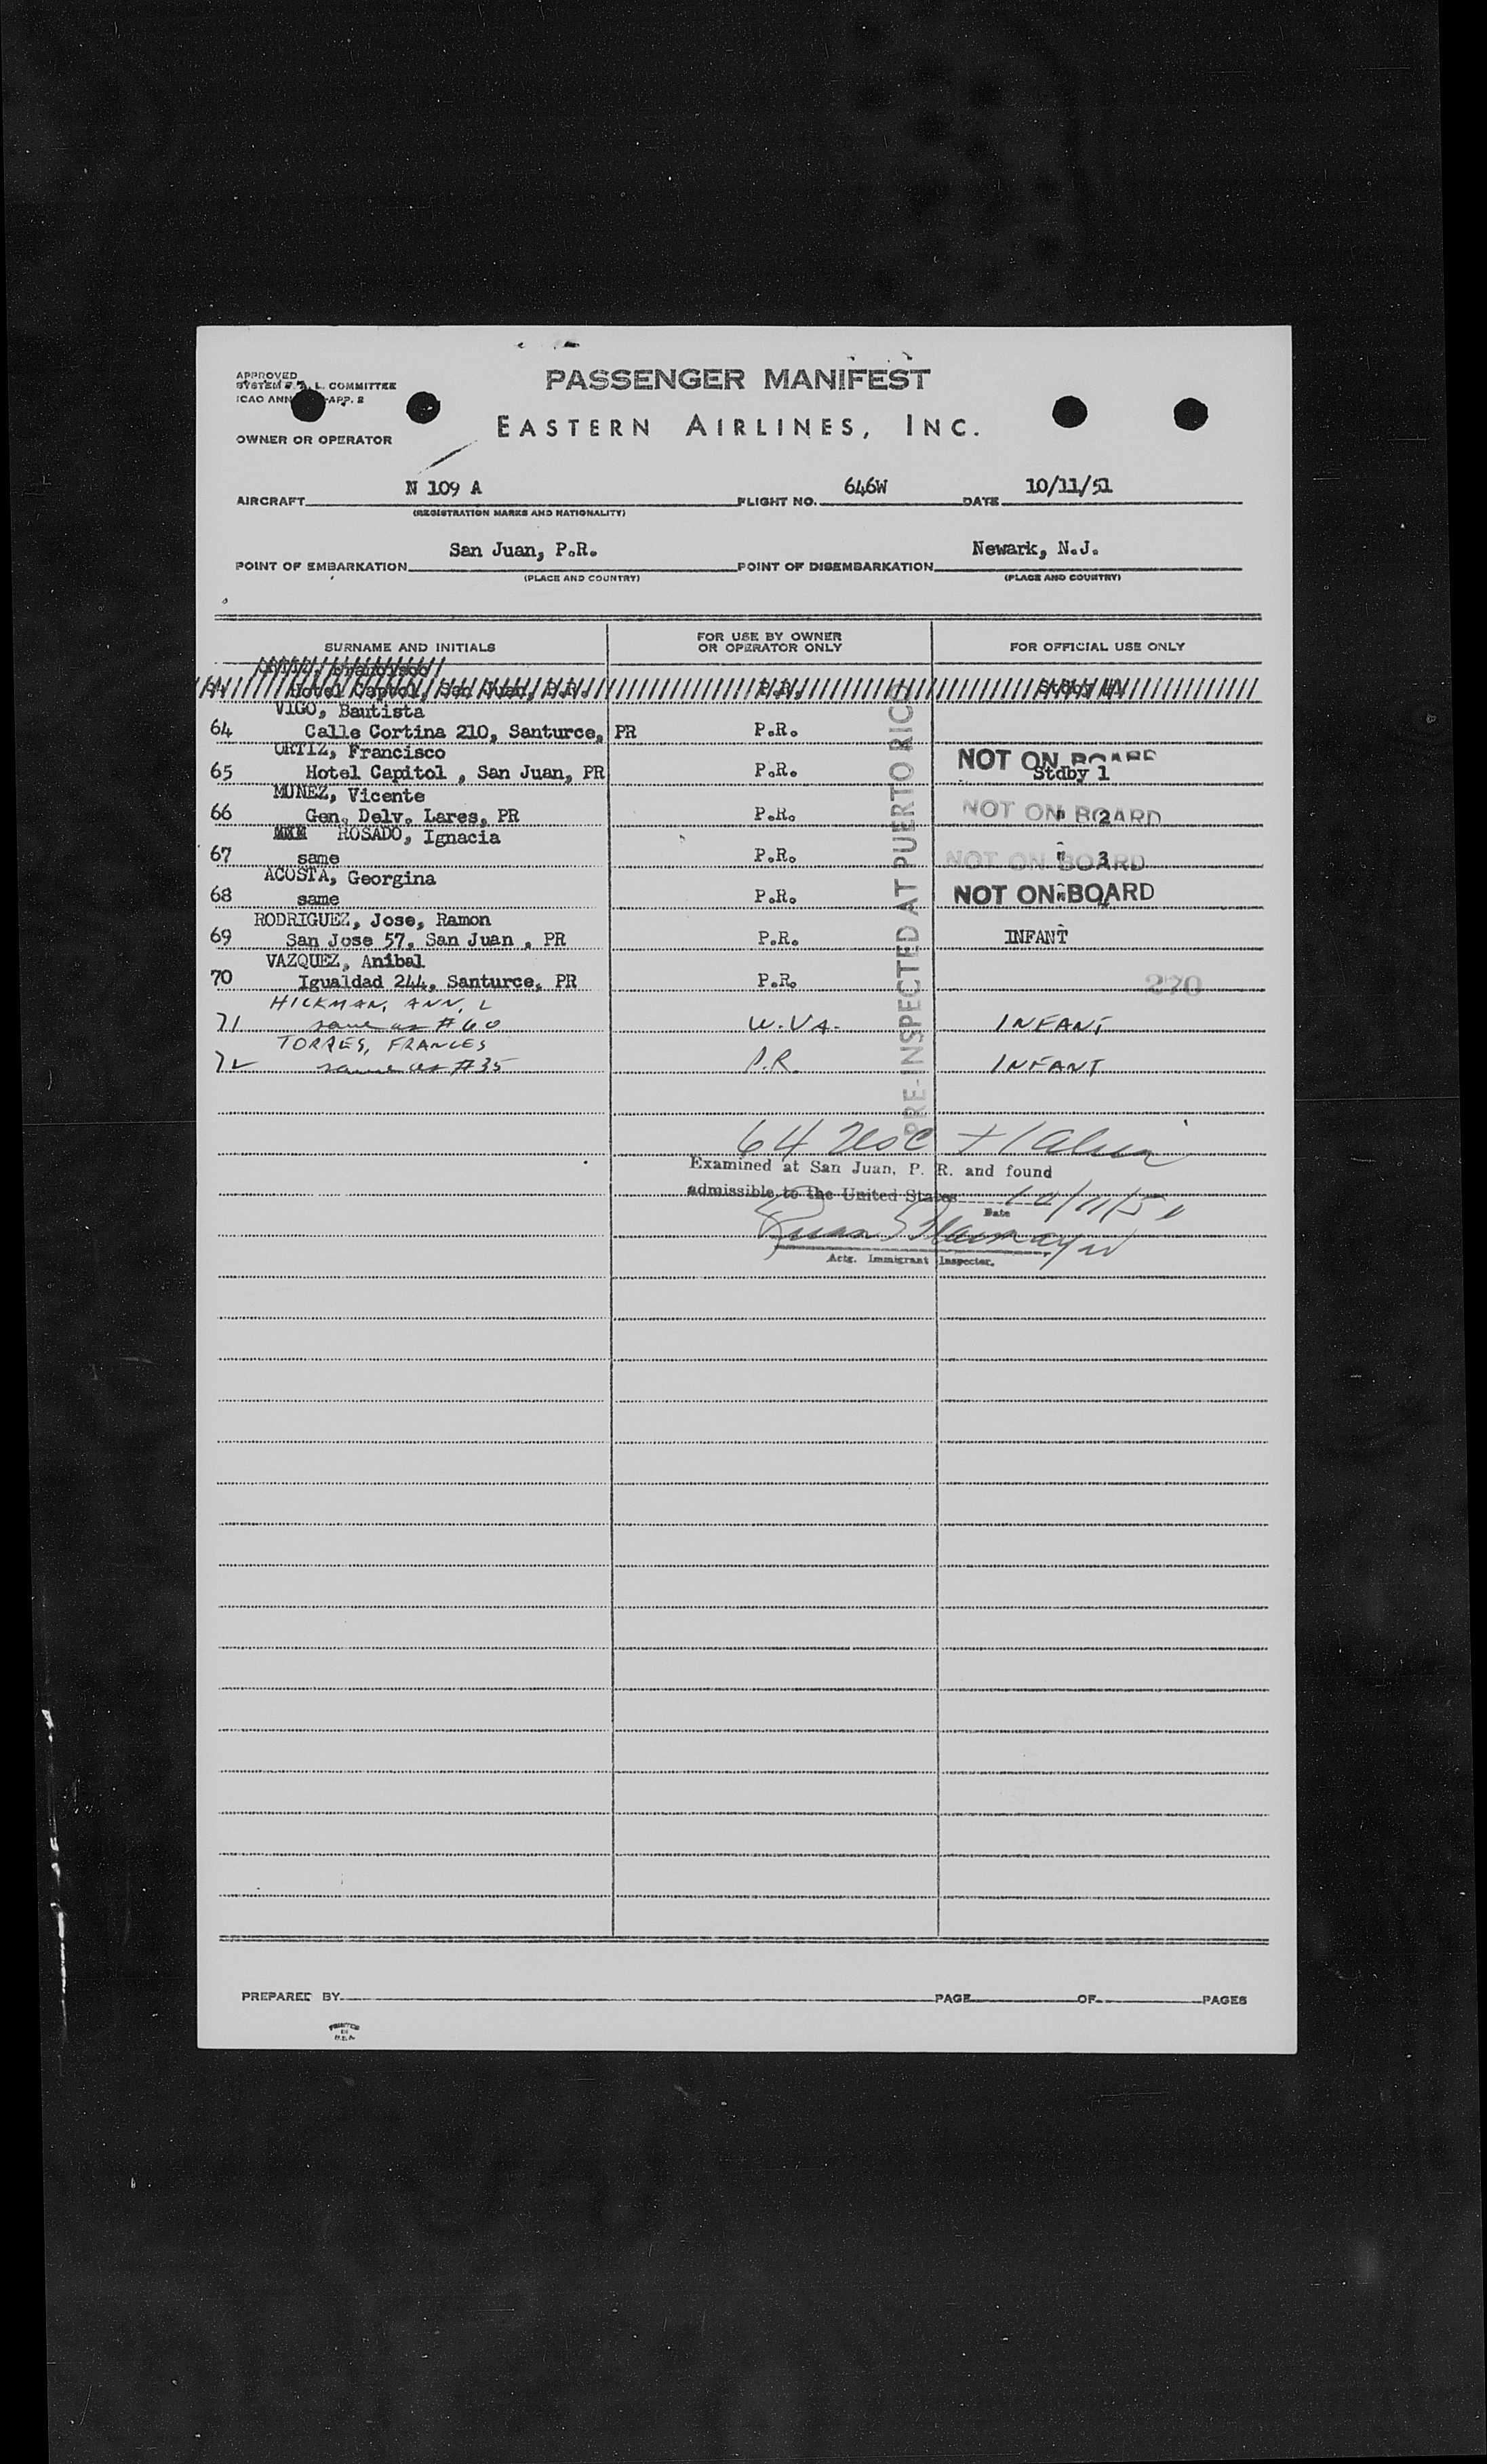 APPROVED
PASSENGER MANIFEST
SYSTEM F.A.L. COMMITTEE
ICAO ANN APP. 2
EASTERN AIRLINES, INC.
OWNER OR OPERATOR
AIRCRAFT N 109 A FLIGHT NO. 646W DATE 10/11/51
(REGISTRATION MARKS AND NATIONALITY)
POINT OF EMBARKATION San Juan, P.R. POINT OF DISEMBARKATION Newark, N.J.
(PLACE AND COUNTRY) (PLACE AND COUNTRY)
SURNAME AND INITIALS FOR USE BY OWNER OR OPERATOR ONLY FOR OFFICIAL USE ONLY
ORTIZ, Francisco
Hotel Capitol, San Juan, P.R. P.R. Stdby
VIGO, Bautista
64 Calle Cortina 210, Santurce, PR P.R.
ORTIZ, Francisco NOT ON BOARD
65 Hotel Capitol , San Juan, PR P.R. Stdby 1
MUNEZ, Vicente
66 Gen. Delv. Lares, PR P.R. NOT ON BOARD " 2
ROSADO, Ignacia
67 same P.R. NOT ON BOARD " 3
ACOSTA, Georgina
68 same P.R. NOT ON BOARD
RODRIGUEZ, Jose, Ramon
69 San Jose 57, San Juan , PR P.R. INFANT
VAZQUEZ, Anibal
70 Igualdad 244, Santurce, PR P.R. 270
HICKMAN, ANN, L
71 same as #60 W.VA. INFANT
TORRES, FRANCES
72 same as #35 P.R. INFANT
PRE-INSPECTED AT PUERTO RICO
64 + 1 Alien
Examined at San Juan, P. R. and found
admissible to the United States 10/11/51
Date
Actg. Immigrant Inspector.
PREPARED BY PAGE OF PAGES
PRINTED
IN
U.S.A.